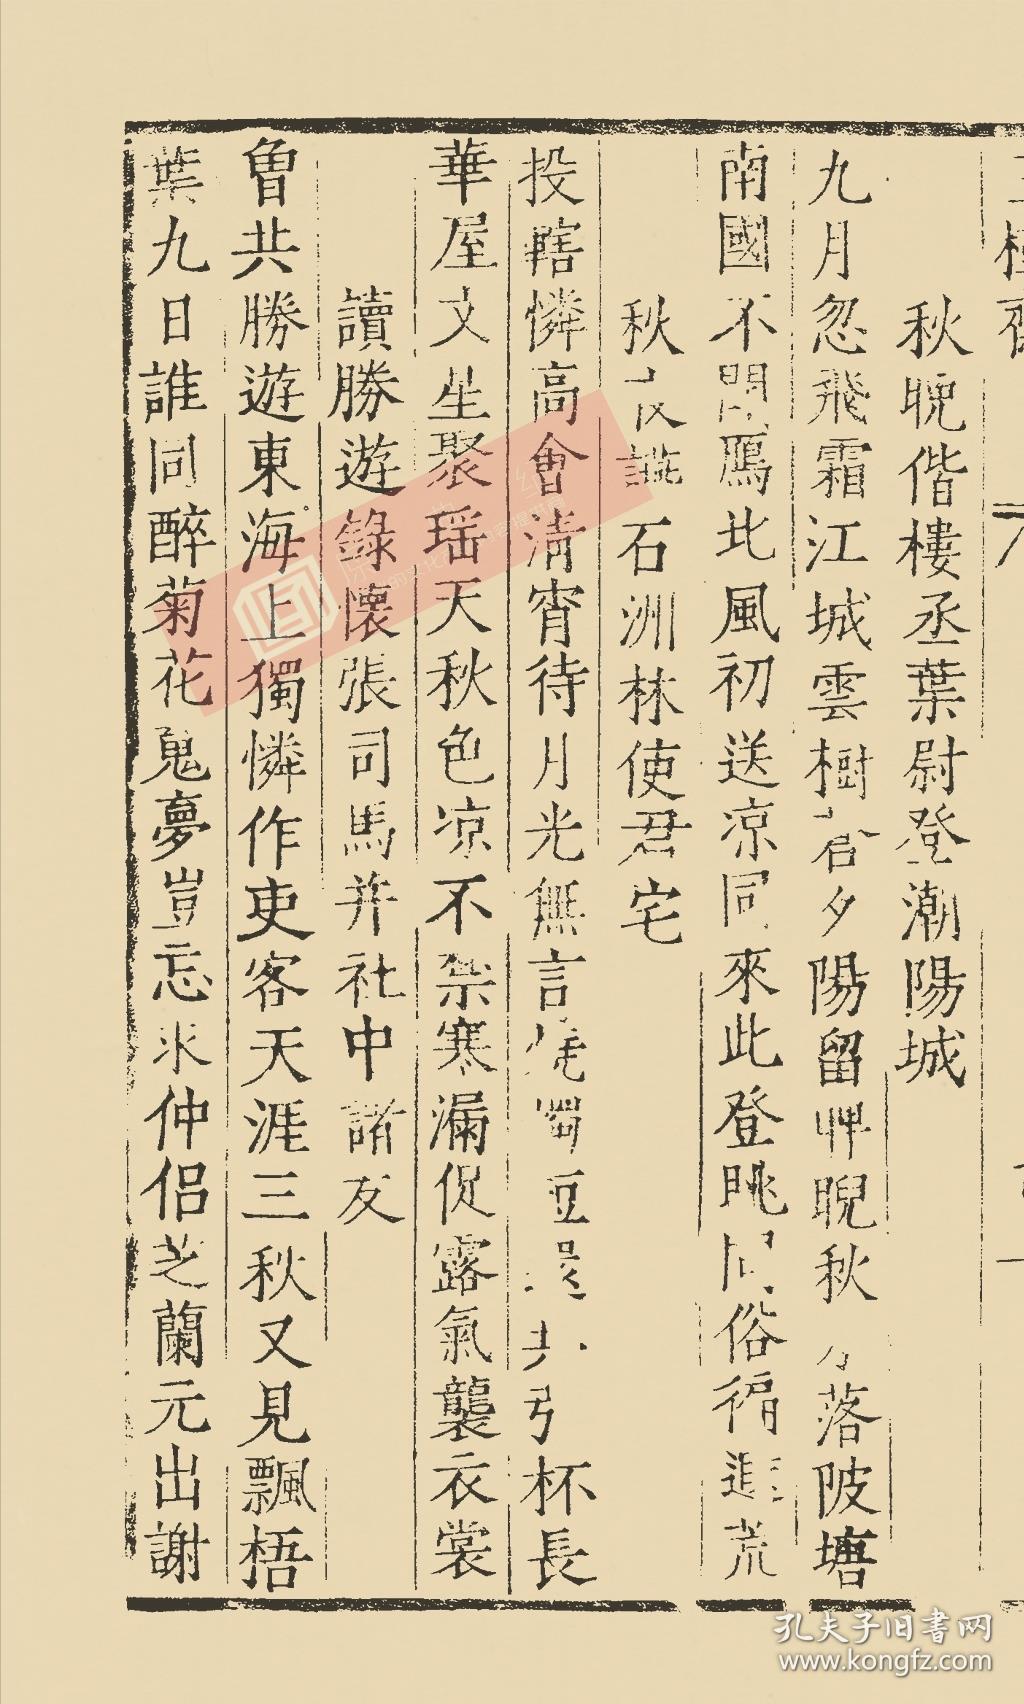 秋晚偕樓丞葉尉登潮陽城
九月忽飛霜江城雲樹蒼夕陽留艸睨秋落陂塘
南國不聞鴈北風初送凉同來此登眺俗徧進荒
秋夜讌石洲林使君宅
投轄憐高會清宵待月光無言燭共杯長
華屋文星聚瑶天秋色凉不禁寒漏促露氣襲衣裳
讀勝遊錄懷張司馬并社中諸友
曾共勝遊東海上獨憐作吏客天涯三秋又見飄梧
葉九日誰同醉菊花䰟夢豈忘求仲侣芝蘭元出謝
孔夫子旧书网
www.kongfz.com